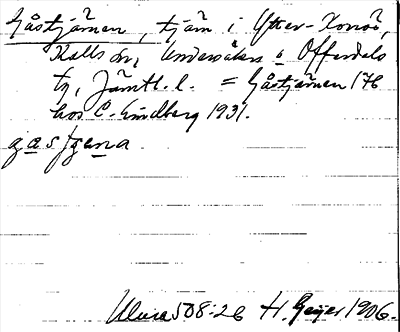 Gåstjärnen, tjärn i Ytter-Konsö,
Kalls sn, Undersåkers o Offerdals
tg, Jämtl. l. = Gåstjärnen 176
hos C. Lindberg 1931.
gastjɛna.
Ulma 508:26 H. Geijer 1906.